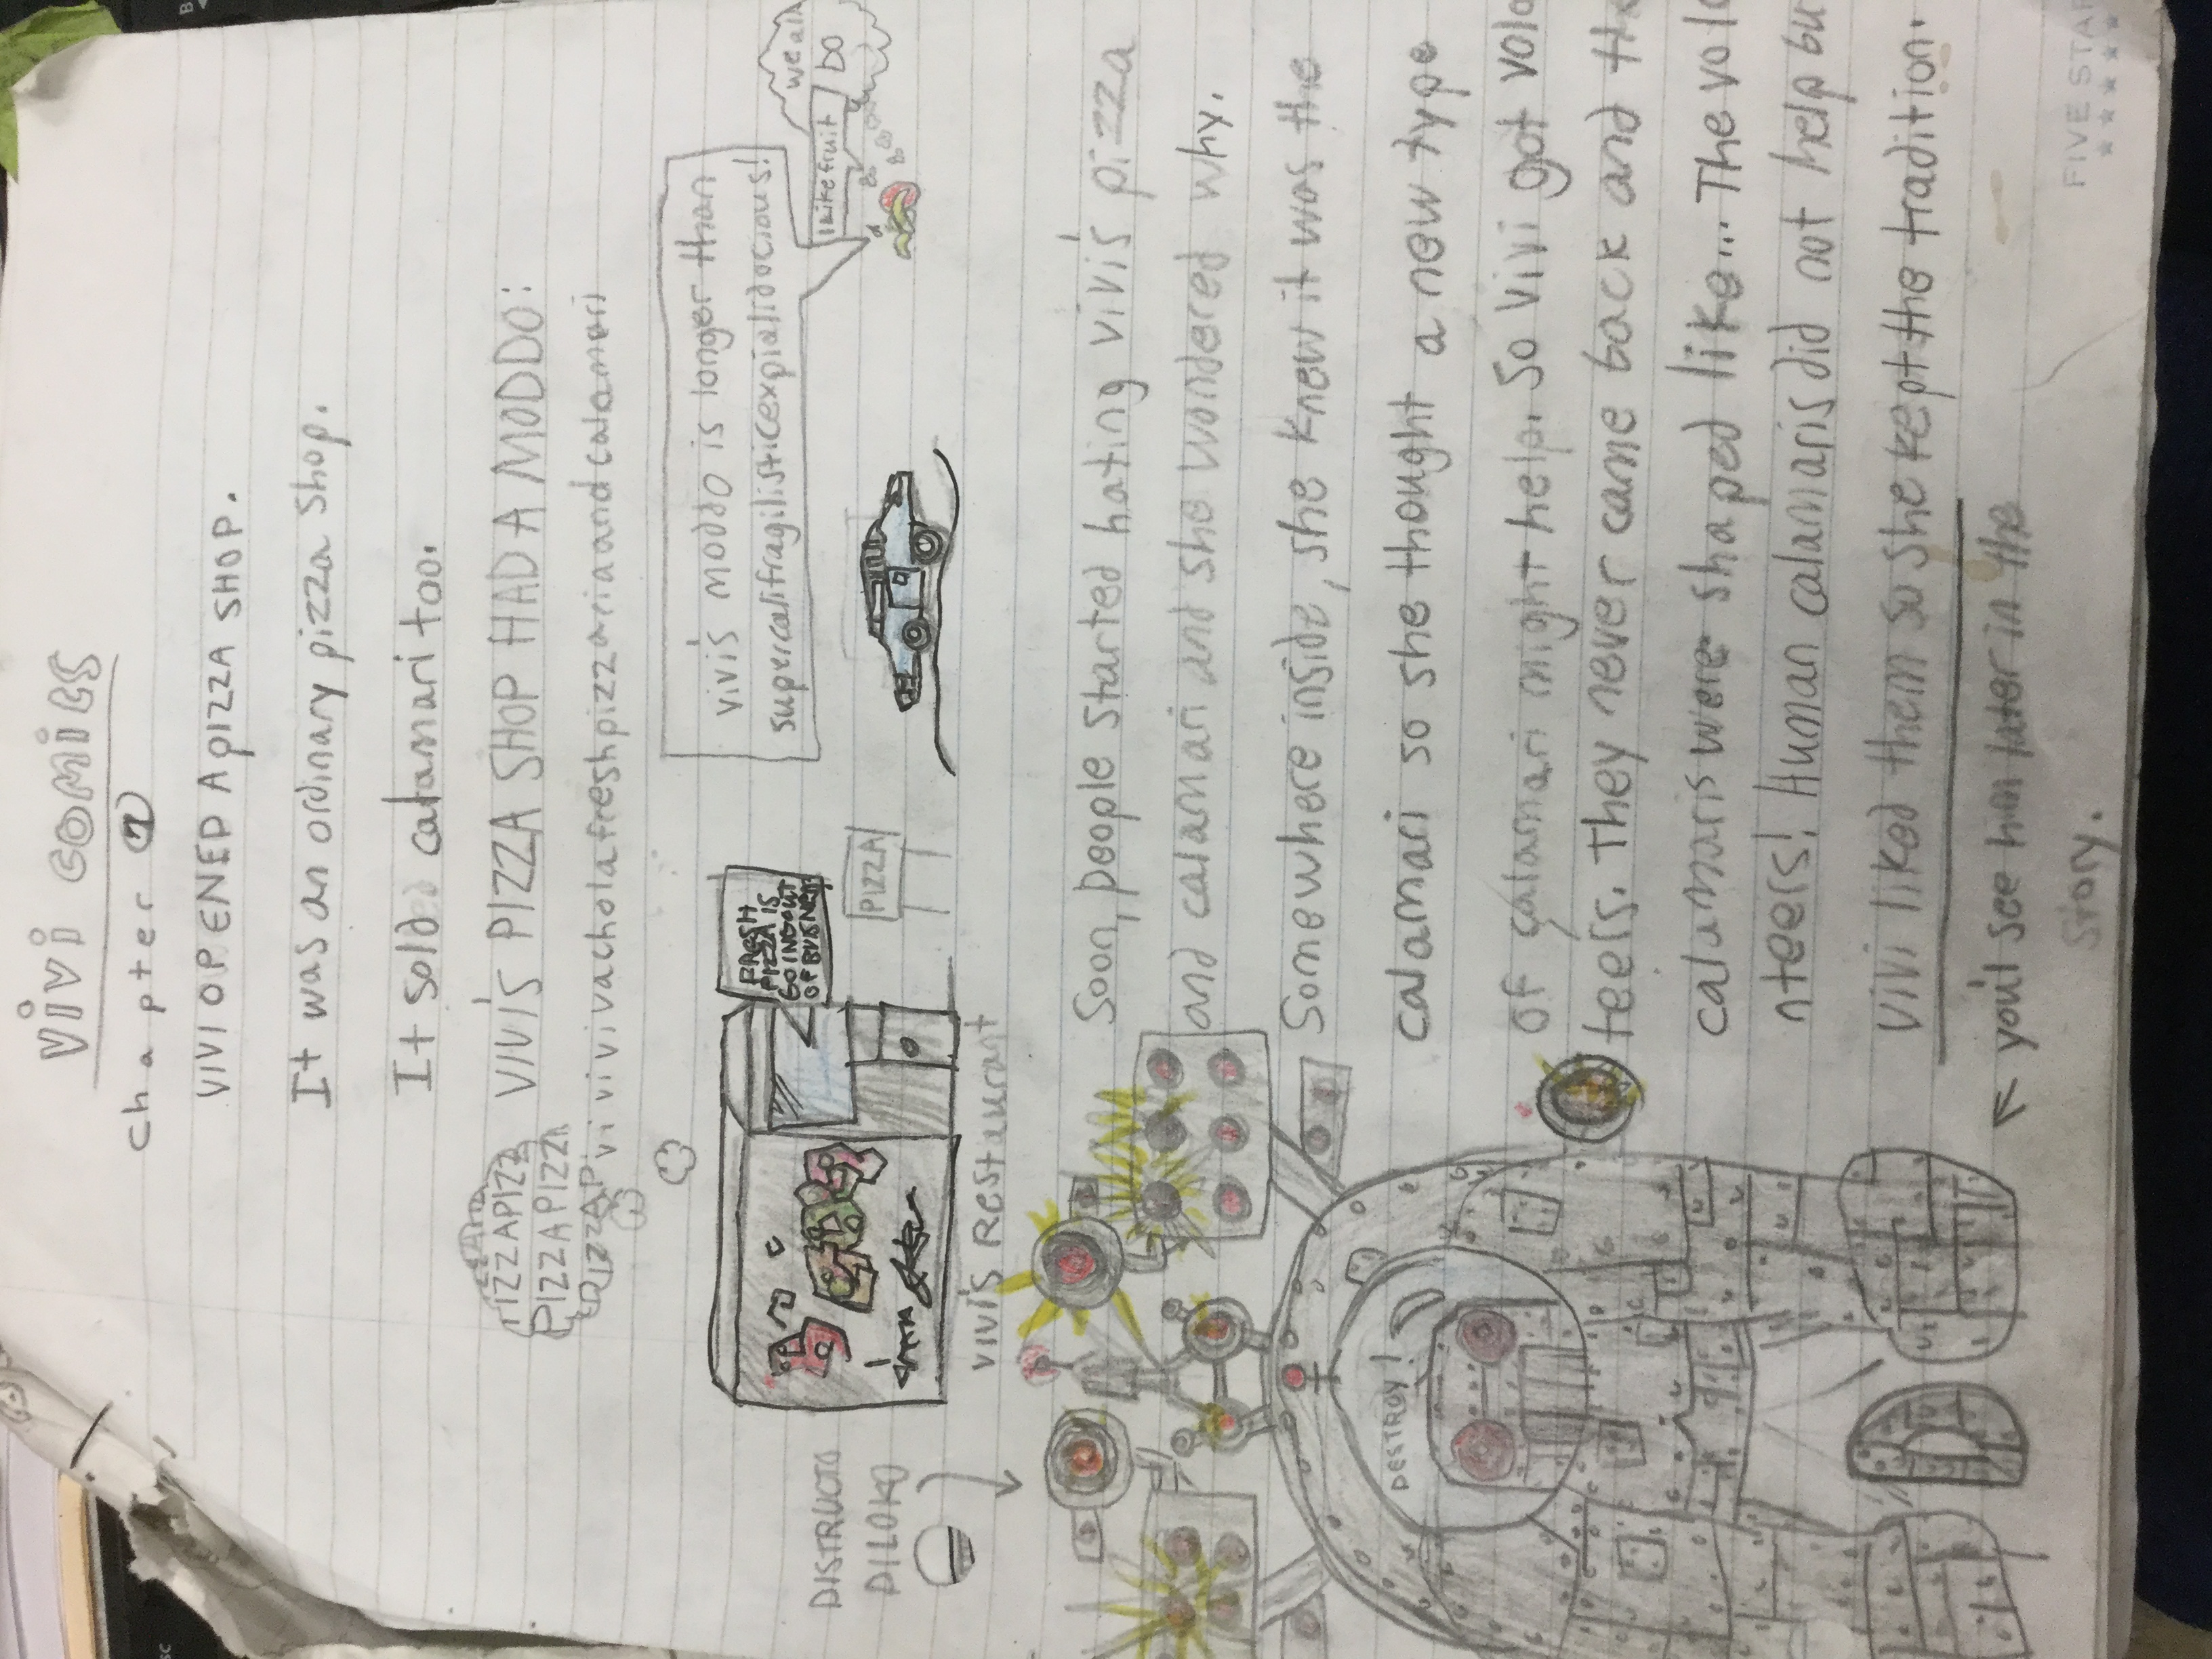 vivi comics
chapter 1
VIVI OPENED A PIZZA SHOP.
It was an ordinary pizza shop.
It sold calamari too.
PIZZAPIZZ
PIZZAPIZZ
PIZZAP
VIVI'S PIZZA SHOP HAD A MODDO:
vivivivacholafreshpizzariaandcalamari
vivi's moddo is longer than
supercalifragilisticexpialidocious!
we all
DO
I like fruit
FRESH
PIZZA IS
GOING OUT
OF BUISNESS
PIZZA
DISTRUCTO
DILOKO
VIVI'S Restaurant
Soon, people started hating vivi's pizza
and calamari and she wondered why.
Somewhere inside, she knew it was the
calamari so she thought a new type
of calamari might help. So Vivi got volo
teers. They never came back and the
calamaris were shaped like... The volo
nteers! Human calamaris did not help bu
vivi liked them so she kept the tradition.
DESTROY!
you'l see him later in the
story.
FIVE STAR